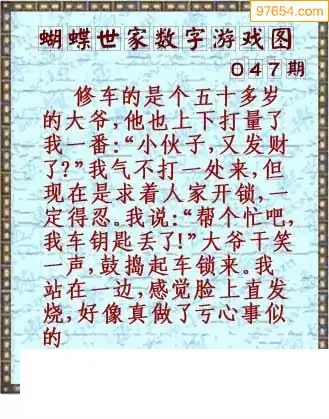 97654.com
蝴蝶世家数字游戏图
047期
修车的是个五十多岁
的大爷,他也上下打量了
我一番:“小伙子,又发财
了?”我气不打一处来,但
现在是求着人家开锁,一
定得忍。我说:“帮个忙吧,
我车钥匙丢了!”大爷干笑
一声,鼓捣起车锁来。我
站在一边,感觉脸上直发
烧,好像真做了亏心事似
的